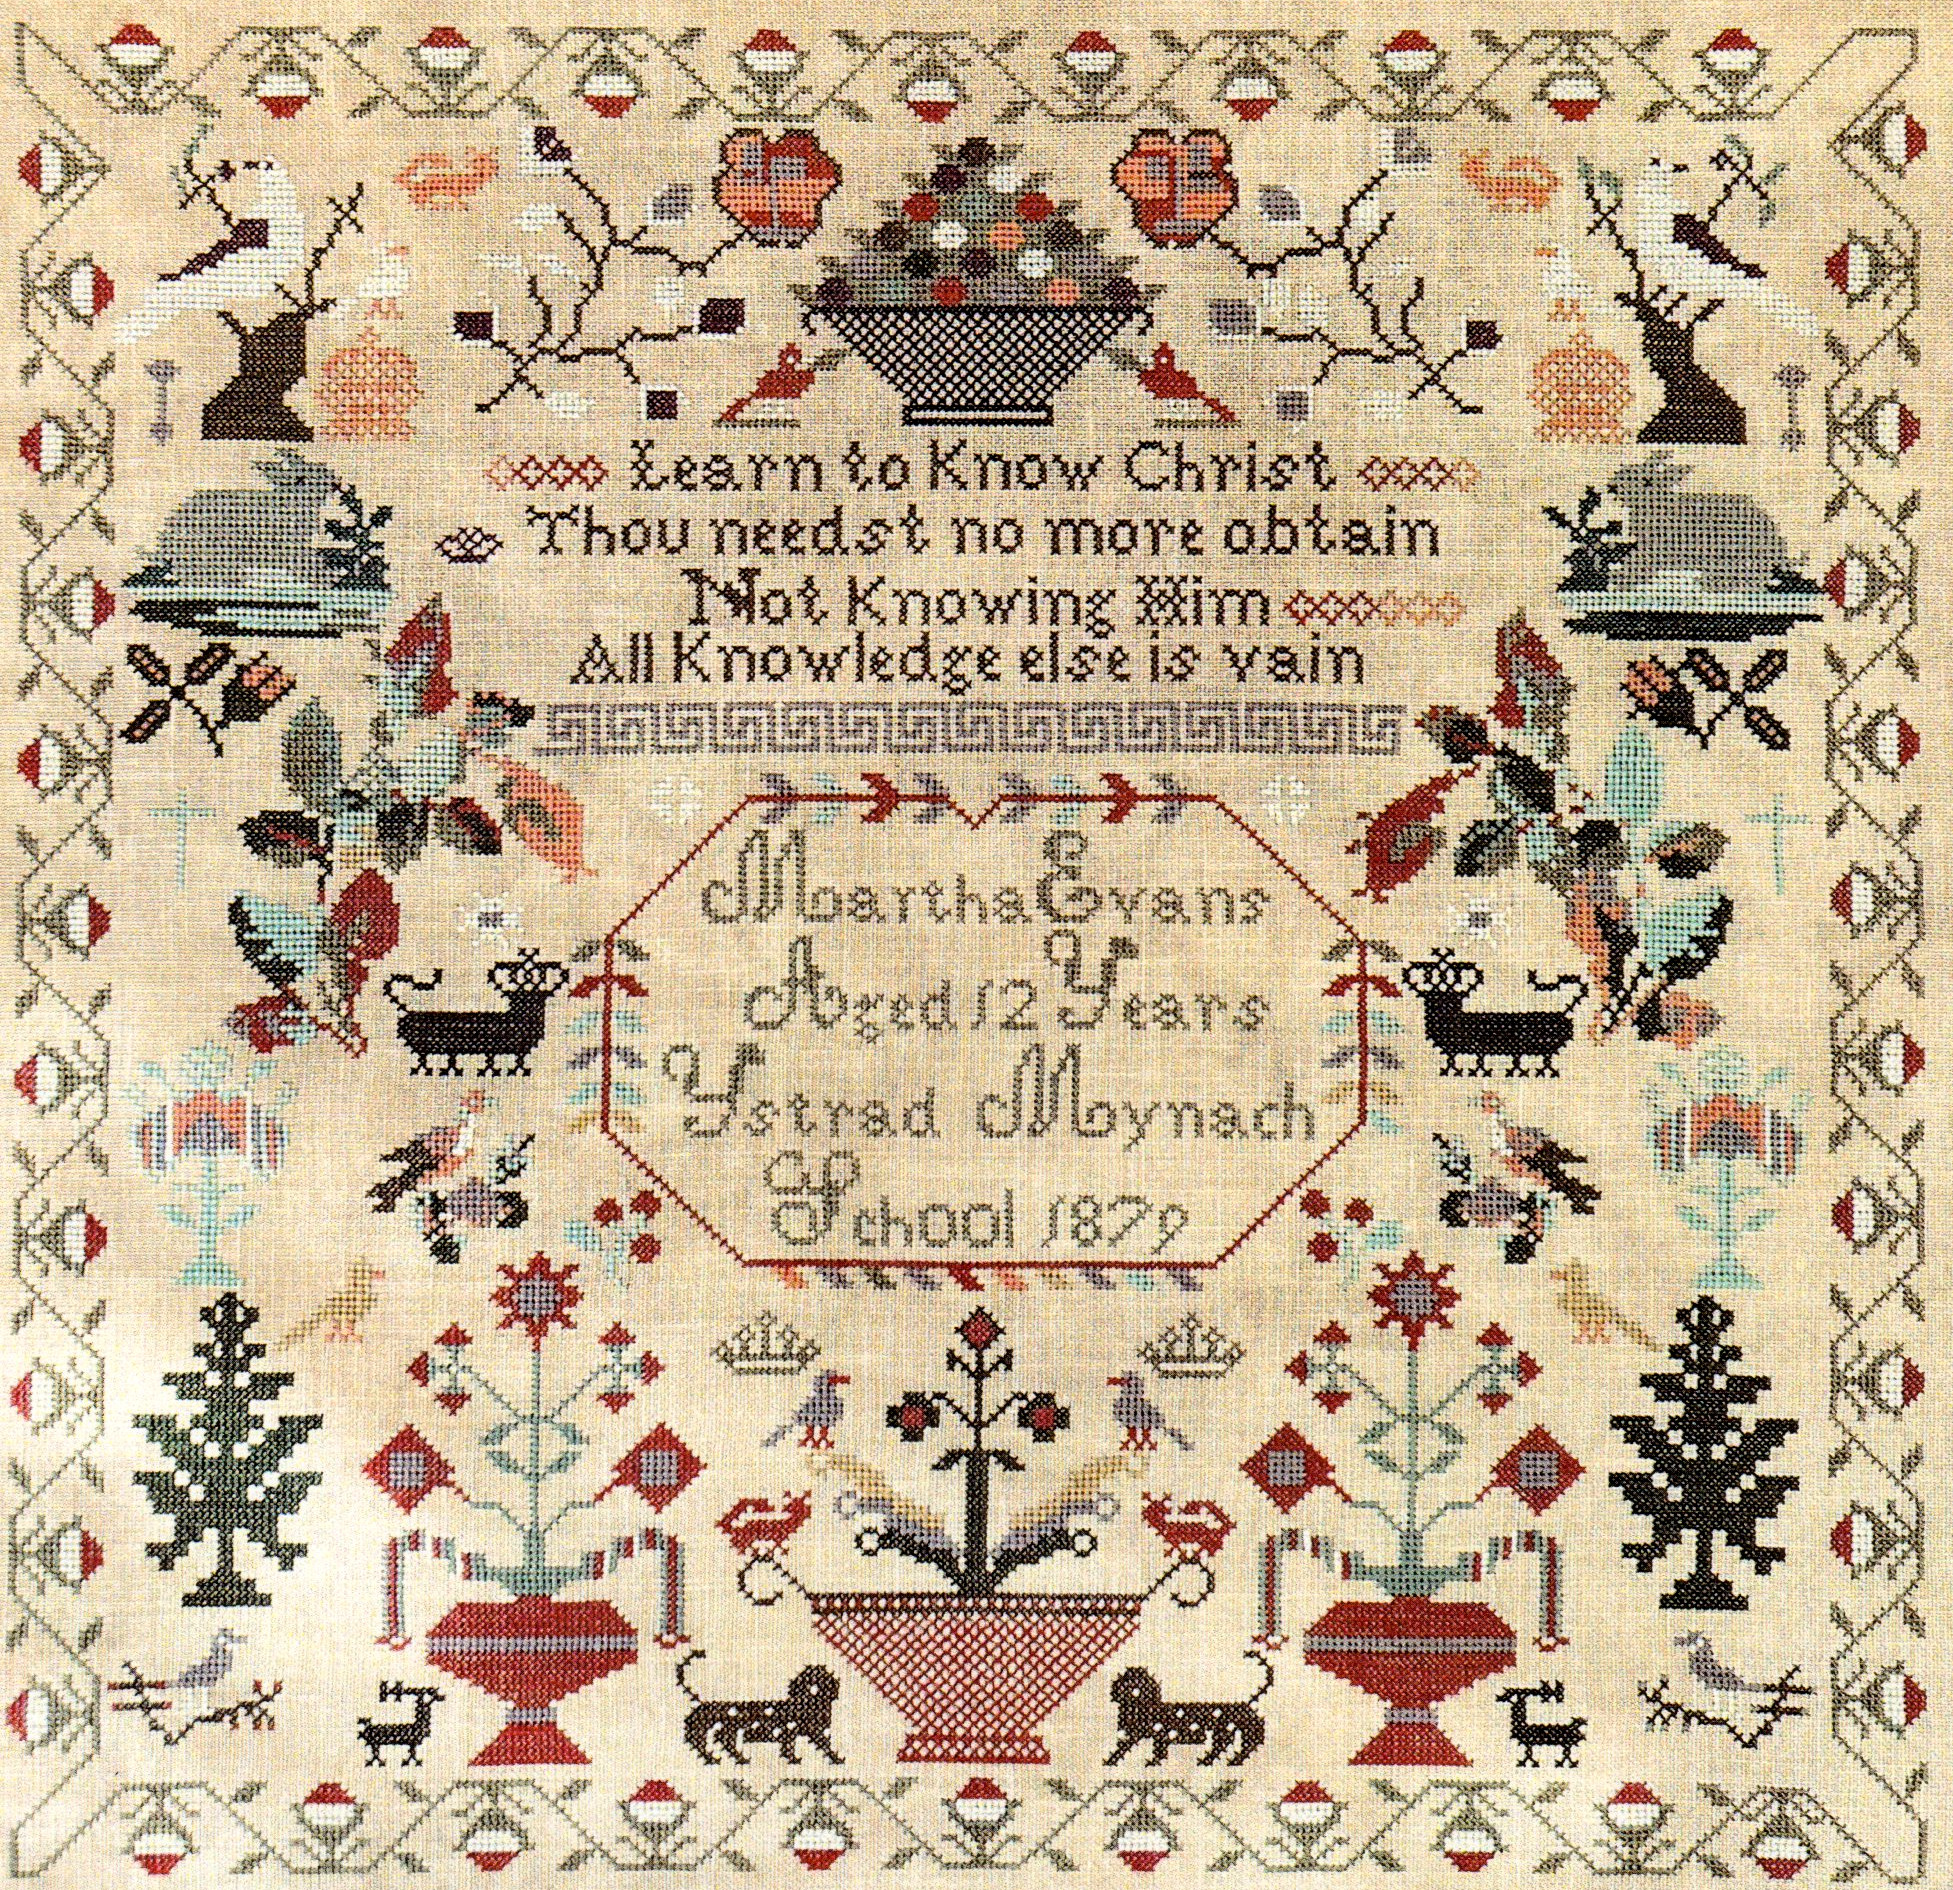 Learn to Know Christ
Thou needst no more obtain
Not Knowing Him
All Knowledge else is vain
Martha Evans
Aged 12 Years
Ystrad Moynach
School 1879